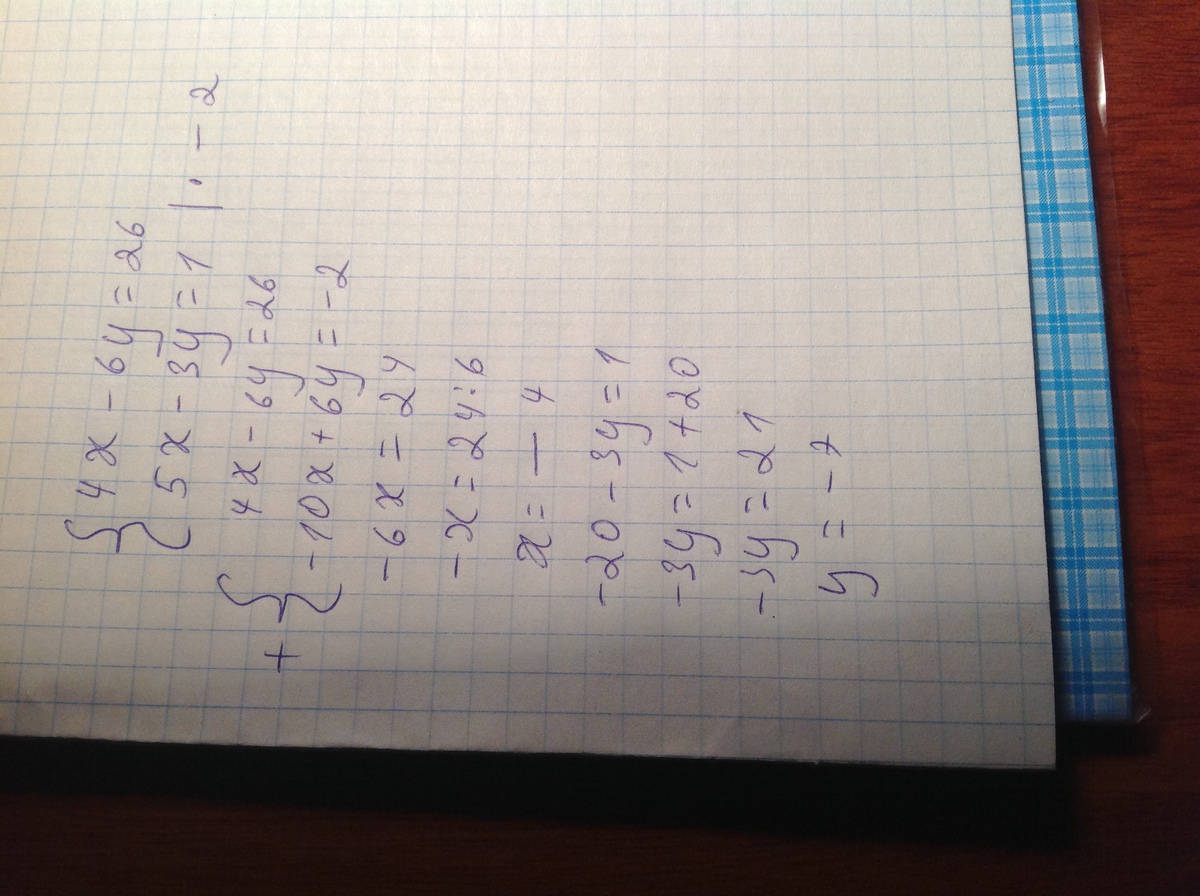 { 4x - 6y = 26
5x - 3y = 1 | · - 2
+ { 4x - 6y = 26
-10x + 6y = -2
-6x = 24
-x = 24 : 6
x = — 4
-20 - 3y = 1
-3y = 1 + 20
-3y = 21
y = -7